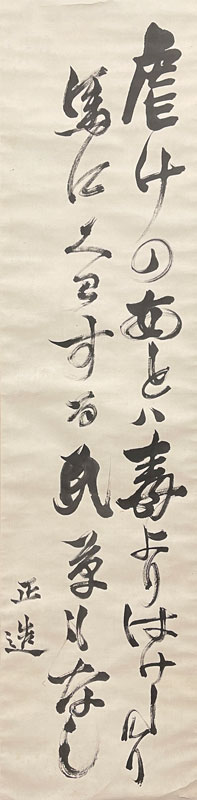 虐けのあとハ毒よりはけしけり
馬にする民草もなし
正造